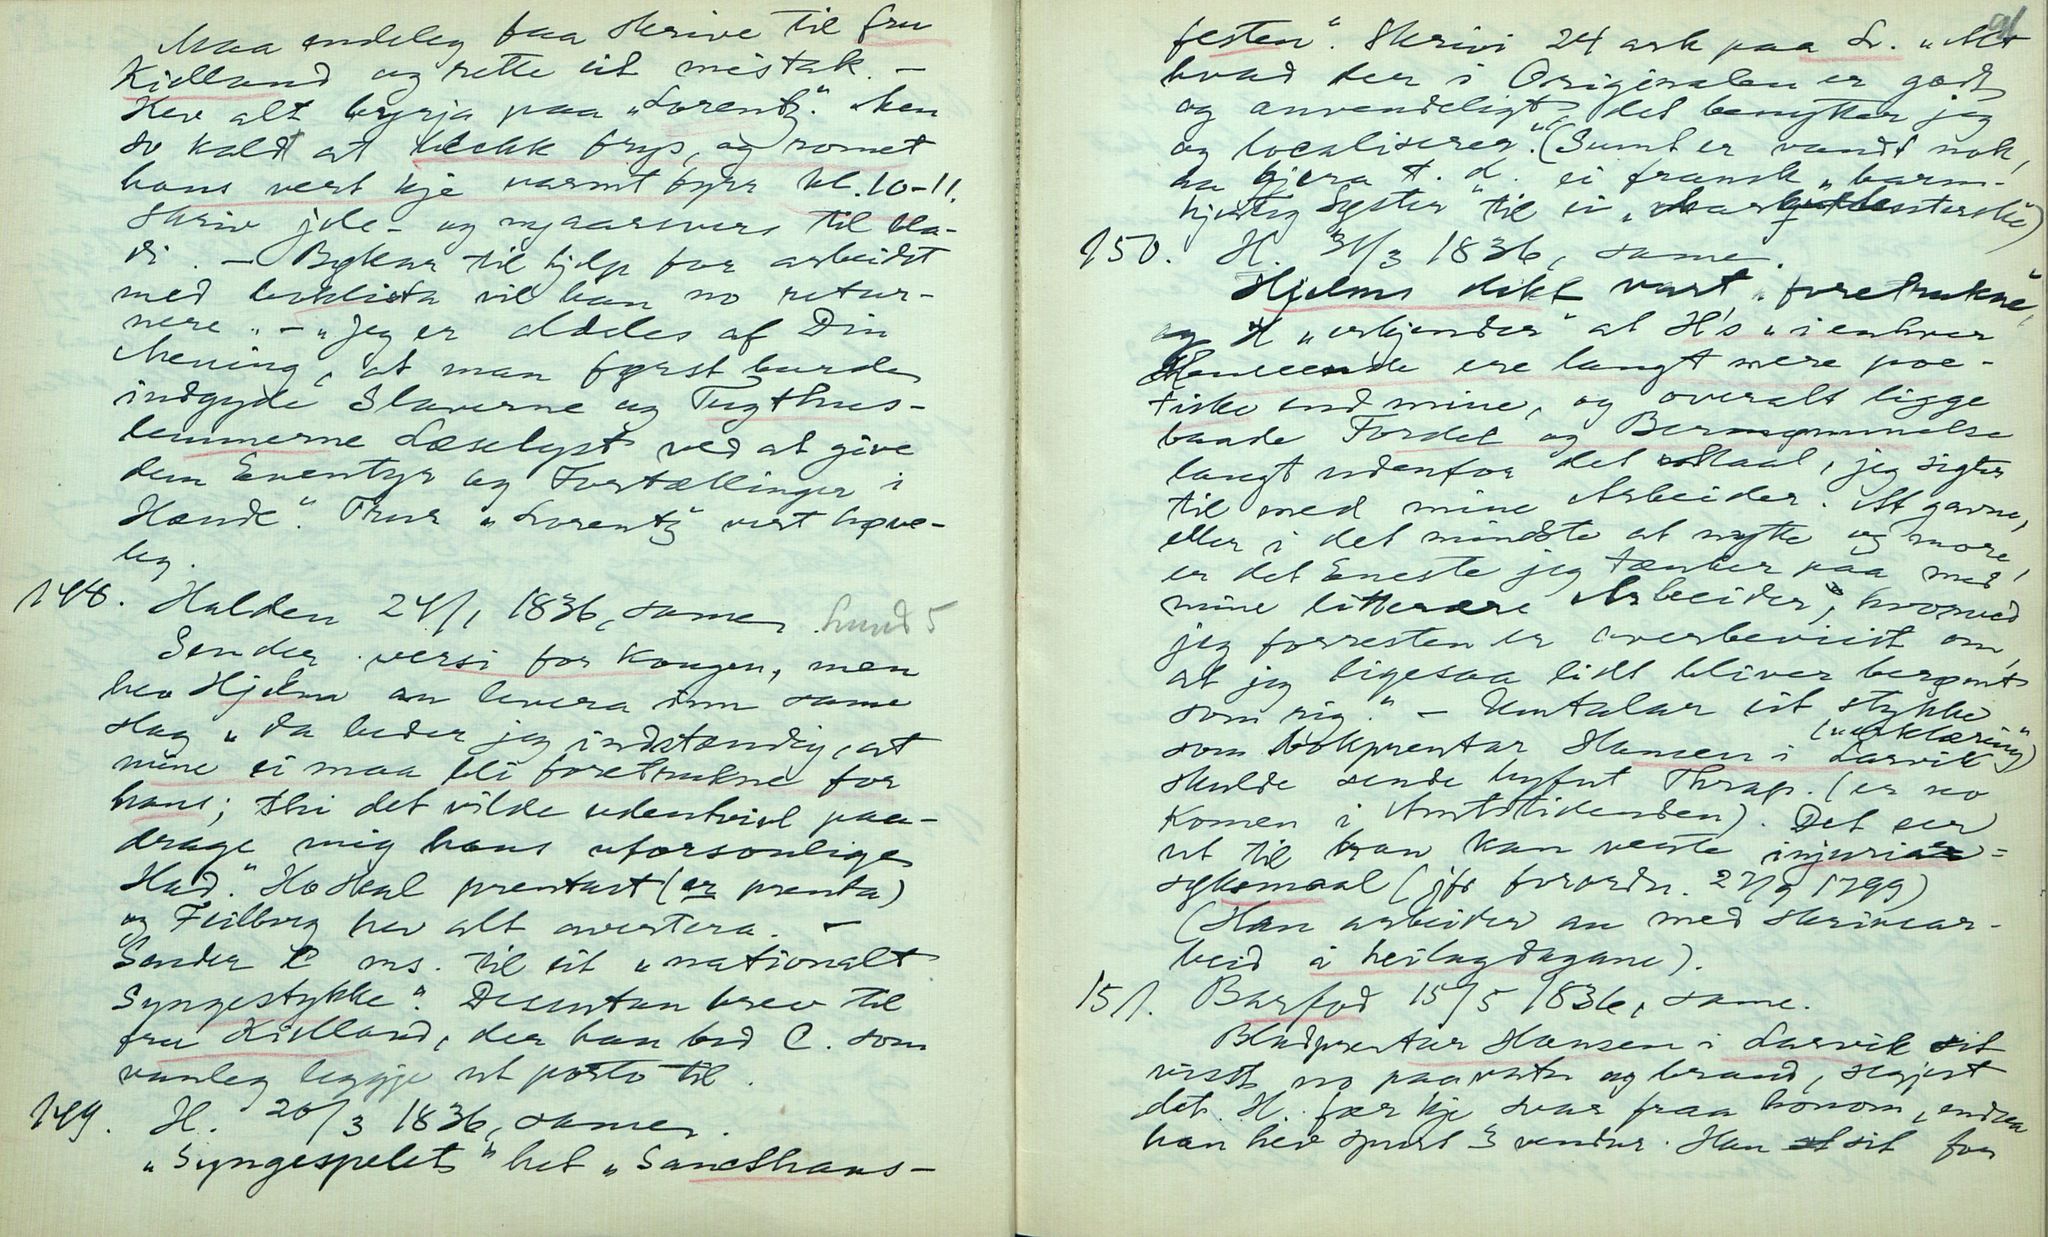 Maa endeleg faa skrive til fru
Kielland og rette eit mistak. –
Hev alt byrja paa „Lorentz". Men
so kaldt at blekk frys, og romet
hans vert kje varmt fyrr kl. 10–11.
Skriv jole- og nyaarsvers til bla-
di. – Bøkar til hjelp for arbeidet
med boklista vil han no retur-
nere. – „Jeg er aldeles af Din
Mening, at man først burde
indgyde Slaverne og Tugthus-
lemmerne Læselyst ved at give
dem Eventyr og Fortællinger i
Hænde". Trur „Lorentz" vert høve-
leg.
148. Halden 24/1 1836, same. Lund 5
Sender versi for Kongen, men
hev Hjelm an levera inn same
slag „da beder jeg indstændig, at
mine ei maa bli foretrukne for
hans; thi det vilde udentvivl paa-
drage mig hans uforsonlige
Had." Ho skal prentast (er prenta)
og Feilberg hev alt avertera. –
Sender C ms. til eit „nationalt
Syngestykke". Desutan brev til
fru Kielland, der han bed C. som
vanleg leggje ut porto til.
149. H. 20/3 1836, same.
„Syngespelet" het „Sancthans-
91
festen". Skrivi 24 ark paa L. „Alt
hvad der i Originalen er godt
og anvendeligt, det benytter jeg
og localiserer." (Sumt er vandt nok,
aa gjera t. d. ei fransk „barm-
hjertig Syster" til ei
150. H. 31/3 1836, same.
Hjelms dikt vart „foretrukne",
og H „erkjender" at H's „i enhver
Henseende ere langt mere poe-
tiske end mine, og overalt ligge
baade Fordel og Berømmelse
langt udenfor det Maal, jeg sigter
til med mine Arbeider. At gavne,
eller i det mindste at nytte og more,
er det Eneste jeg tænker paa med
mine litterære Arbeider, hvorved
jeg forresten er overbeviist om,
at jeg ligesaa lidt bliver berømt
som rig." – Umtalar eit stykke
(„erklæring")
som bokprentar Hansen i Larvik
skulde sende byfut Thrap. (er no
komen i Amtstidenden). Det ser
ut til han kan vente injurie-
sykemaal (jfr forordn. 27/9 1799)
(Han arbeider an med skrivear-
beid i heilagdagane).
151. Barfod 15/5 1836, same.
Bladprentar Hansen i Larvik sit
visst no paa vatn og braud, skjent
det. H. fær kje svar fraa honom, endaa
han hev spurt 3 vendur. Han sit for